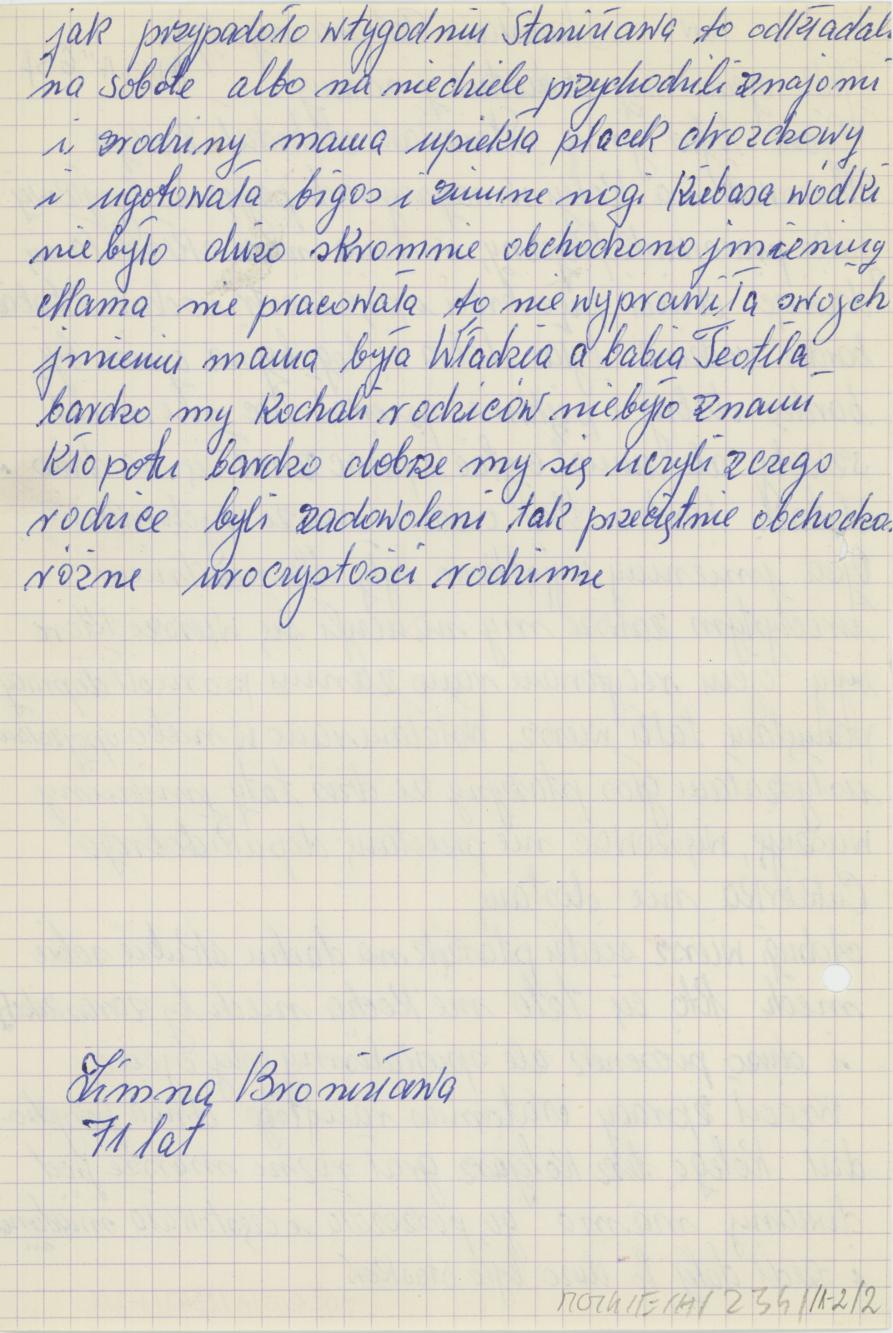 jak przypadoło wtygodniu Stanisława to odkładali
na sobote albo na niedziele przychodzili znajomi
i zrodziny mama upiekła placek drozdzowy
i ugotowała bigos i zimne nogi kiebasa wódki
niebyło dużo skromnie obchodzono jmieniny
Mama nie pracowała to niewyprawiła swojch
jmienin mama była Władzia a babia Teofila
bardzo my kochali rodziców niebyło znami
kłopotu bardzo dobrze my się uczyli zczego
rodzice byli zadowoleni tak przeciętnie obchodza
różne uroczystości rodzinne
Zimna Bronisława
71 lat
234/II-2/2